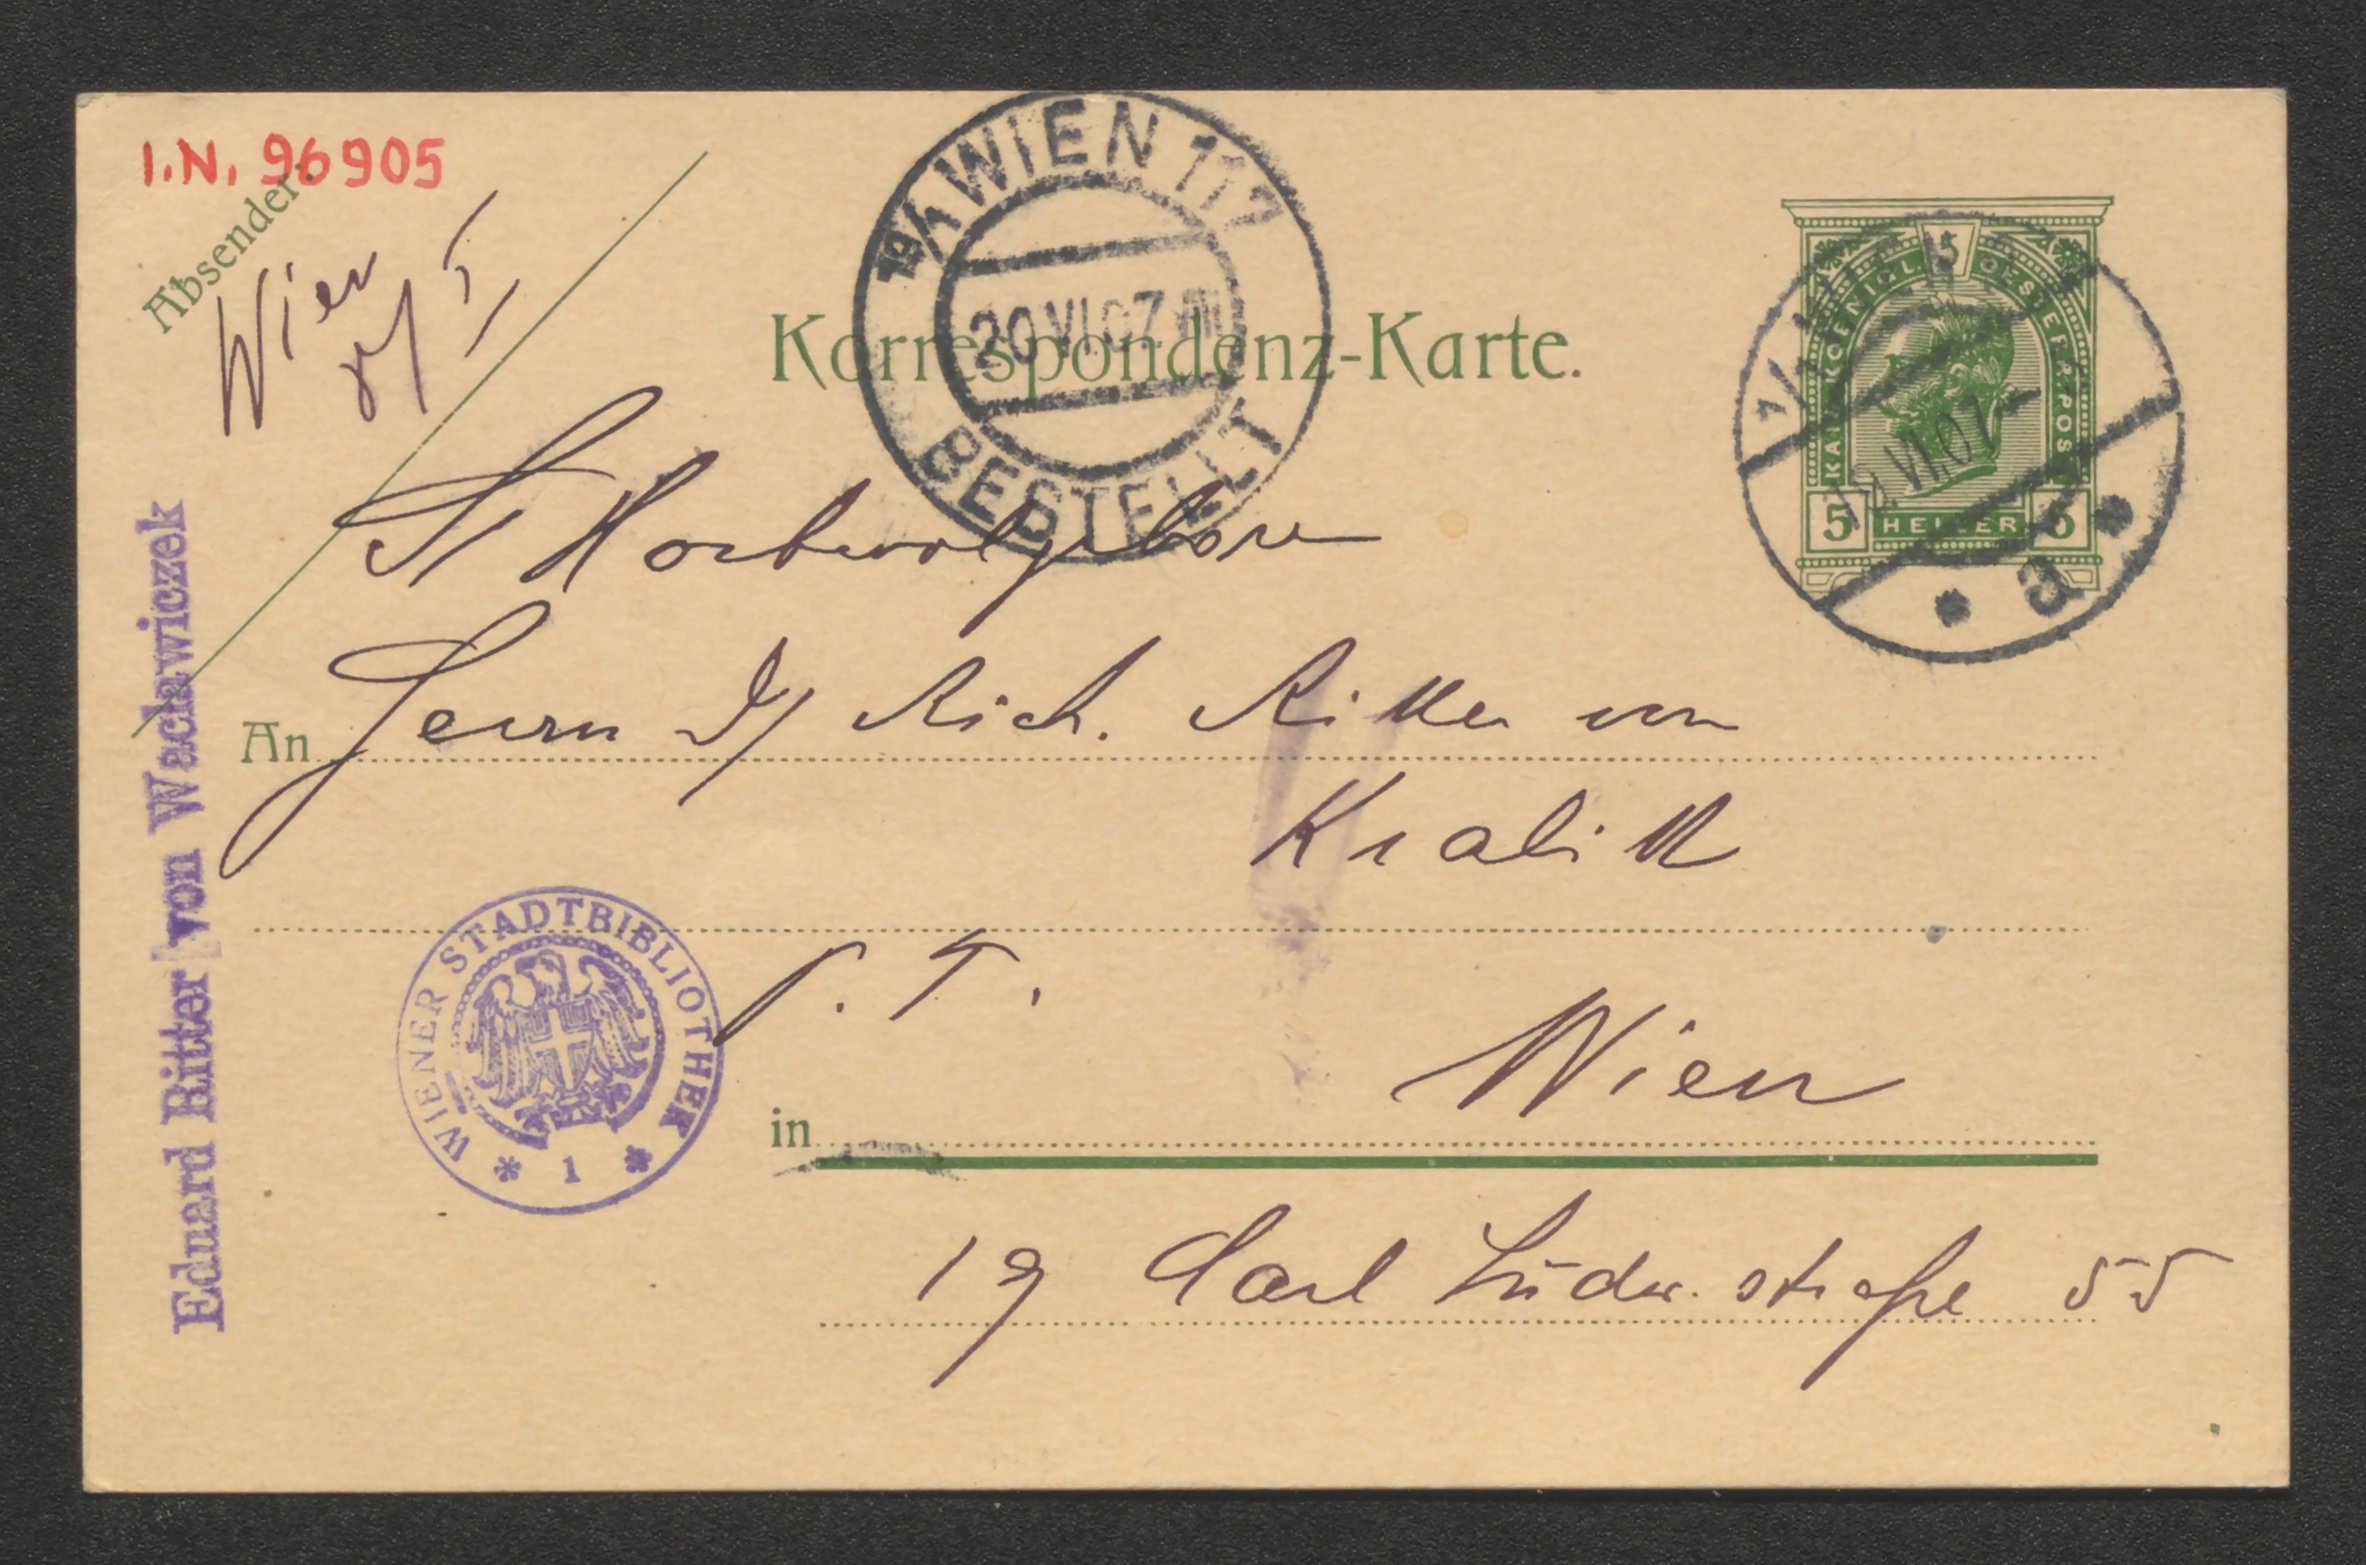 I.N. 96905
Absender:
Wien
Korrespondenz-Karte.
19/1 WIEN 117
20.VI.07
BESTELLT
KAIS. KOENIGL. OESTERR. POST
5
5 HELLER 5
VI.07
* a *
Eduard Ritter von Waclawiczek
Hochwolgeboren
An Herrn Dr Rich. Ritter von
Kralik
P. T.
WIENER STADTBIBLIOTHEK
* 1 *
in Wien
19 Carl Ludw. straße 55